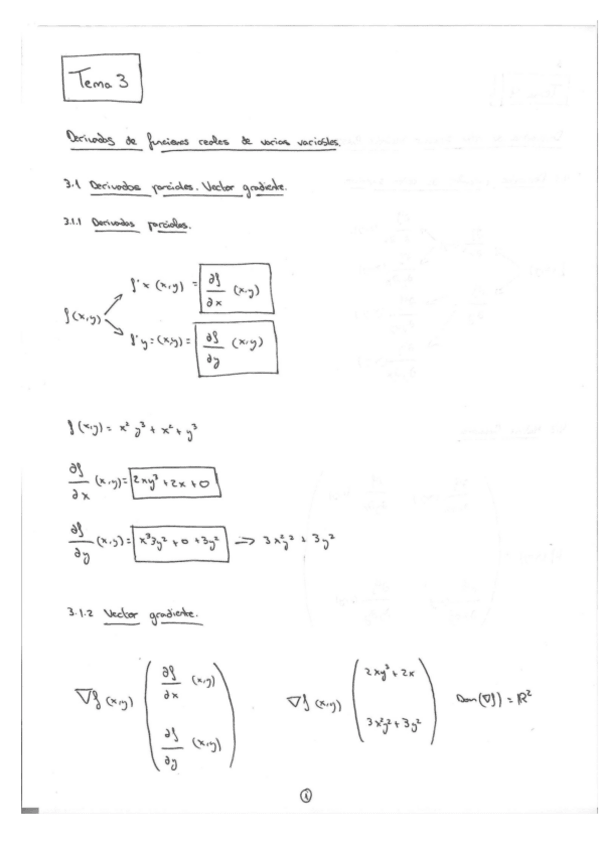 Tema 3
Derivadas de funciones reales de varias variables.
3.1 Derivadas parciales. Vector gradiente.
3.1.1 Derivadas parciales.
f'x (x,y) = ∂f/∂x (x,y)
f(x,y)
f'y = (x,y) = ∂f/∂y (x,y)
f(x,y) = x² y³ + x² + y³
∂f/∂x (x,y) = 2xy³ + 2x + 0
∂f/∂y (x,y) = x³3y² + 0 + 3y² => 3x²y² + 3y²
3.1.2 Vector gradiente.
∇f (x,y) ( ∂f/∂x (x,y) ∂f/∂y (x,y) ) ∇f (x,y) ( 2xy³ + 2x 3x²y² + 3y² ) Dom(∇f) = ℝ²
1